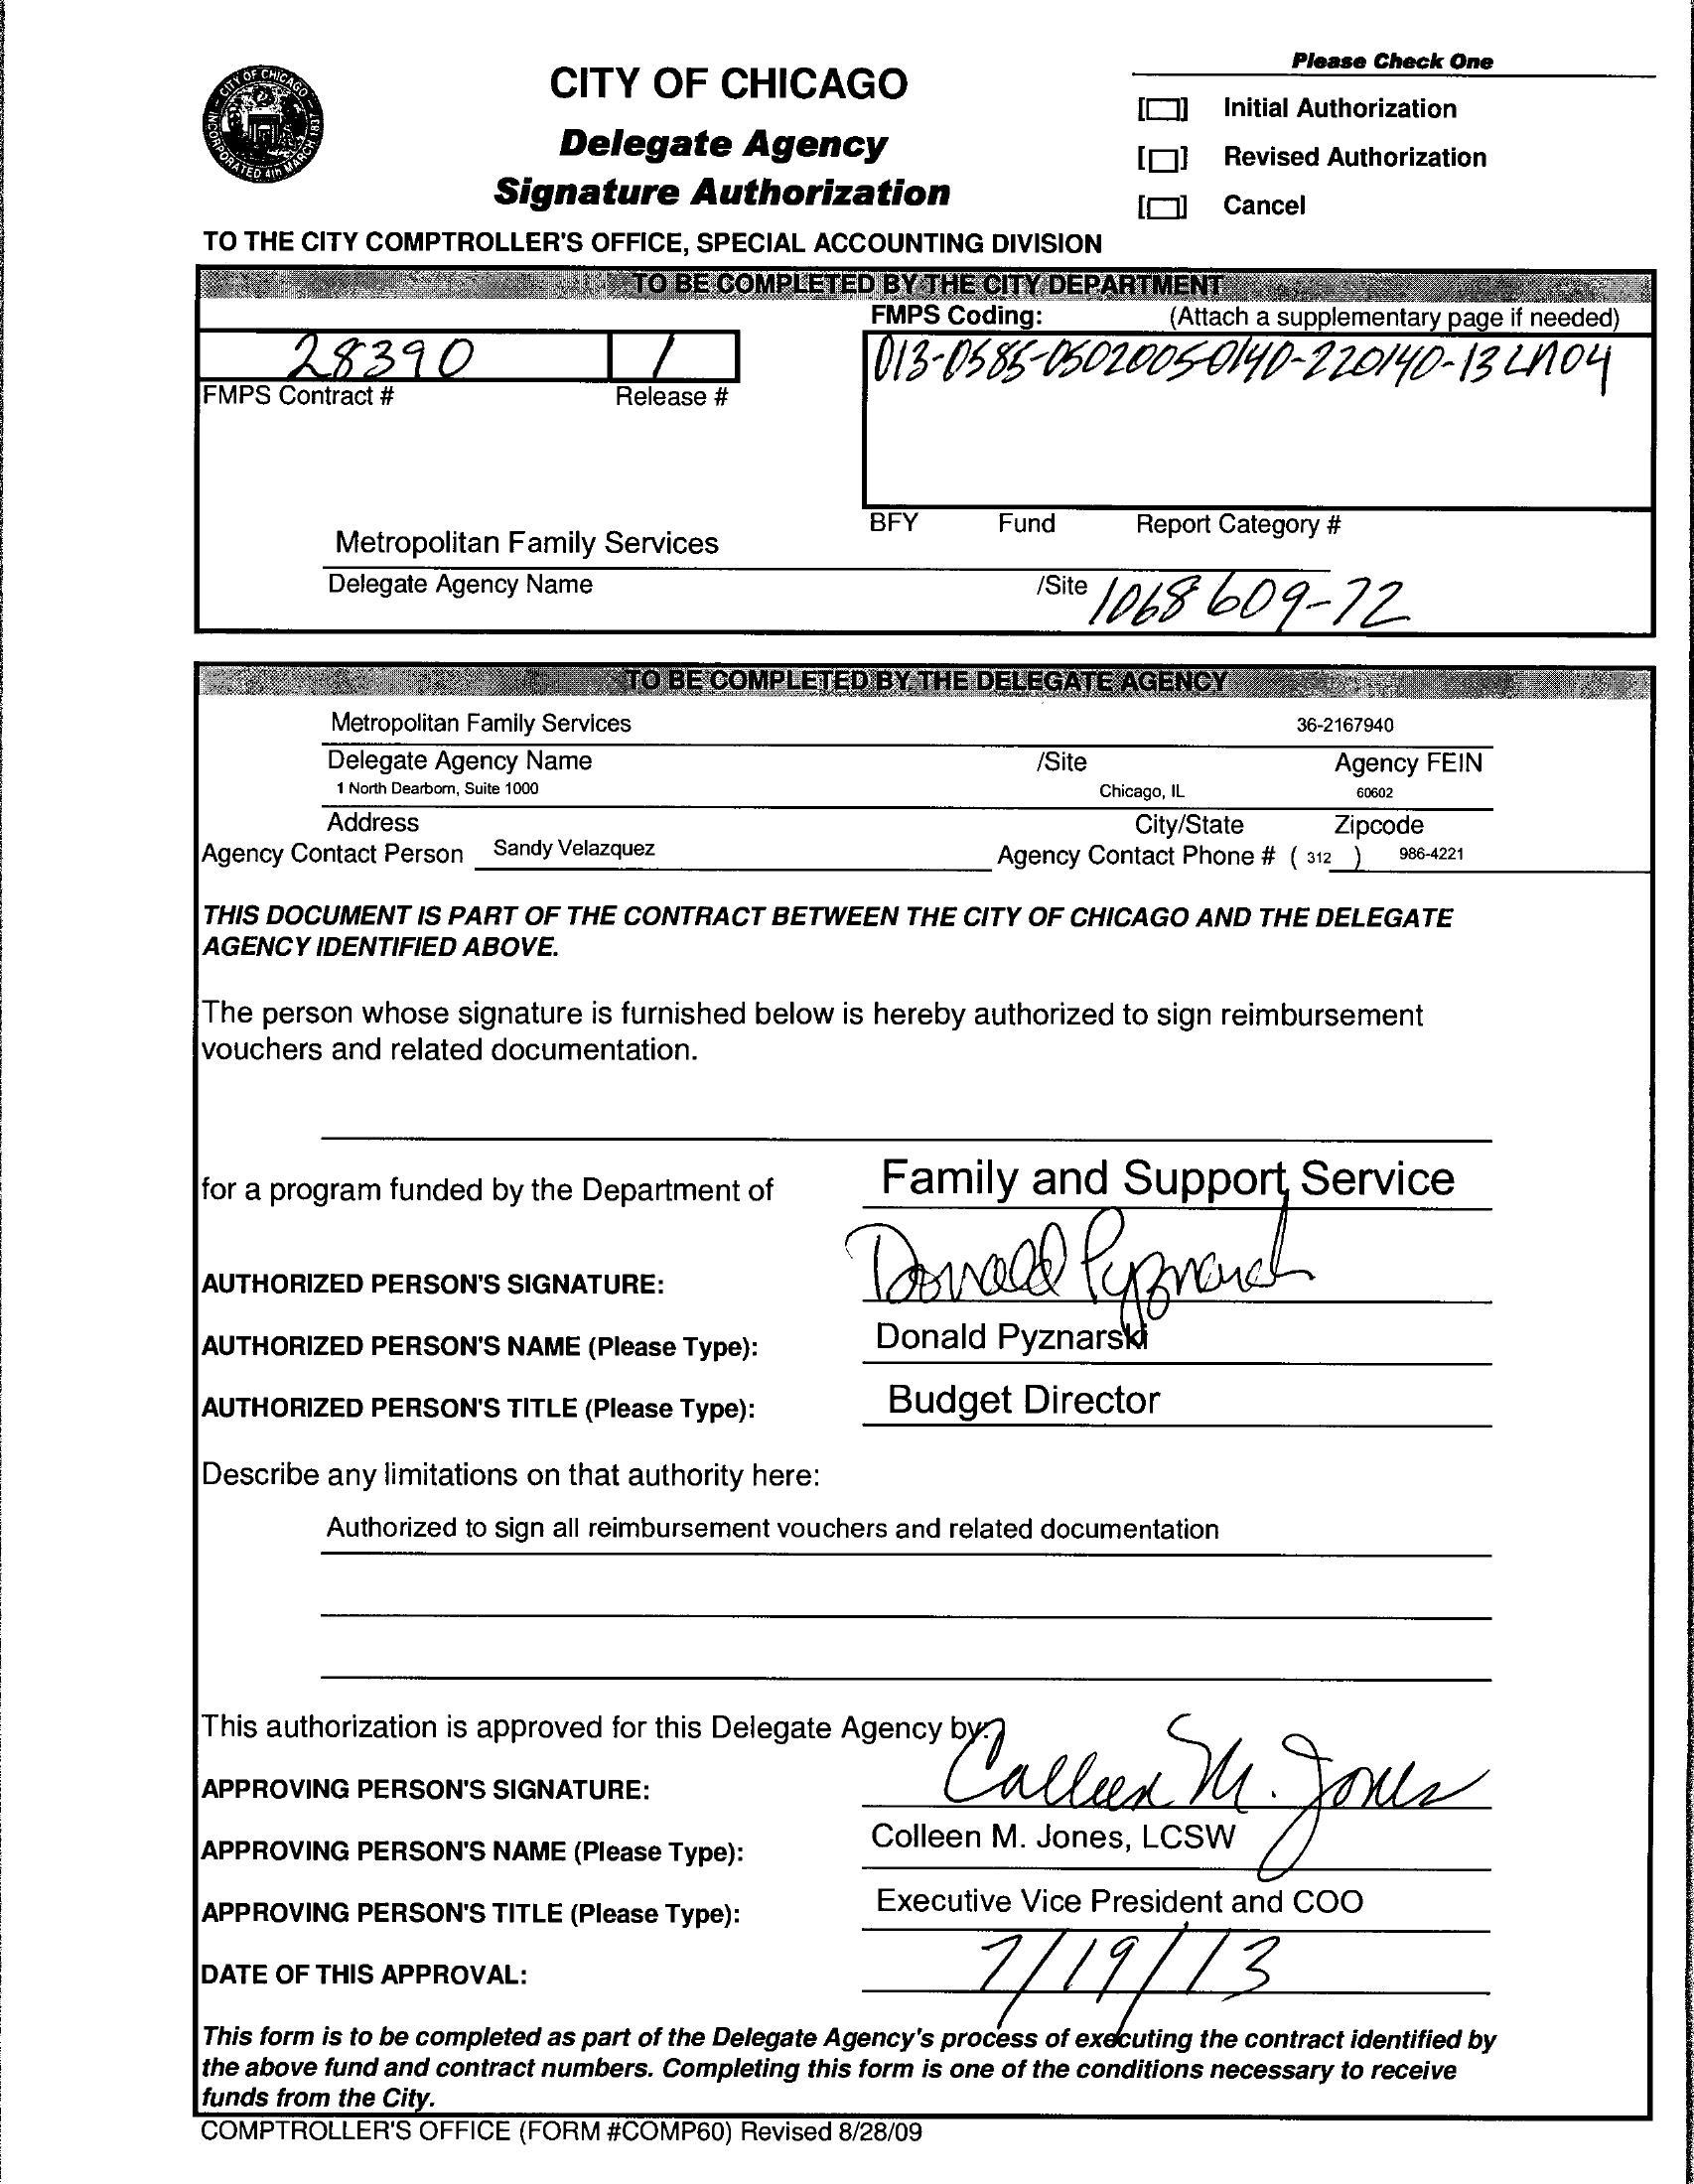 CITY OF CHICAGO
INCORPORATED 4th MARCH 1837
CITY OF CHICAGO
Delegate Agency
Signature Authorization
Please Check One
[ ] Initial Authorization
[ ] Revised Authorization
[ ] Cancel
TO THE CITY COMPTROLLER'S OFFICE, SPECIAL ACCOUNTING DIVISION
TO BE COMPLETED BY THE CITY DEPARTMENT
FMPS Coding: (Attach a supplementary page if needed)
28390 1 013-0585-0502005-0140-220140-13
FMPS Contract # Release #
BFY Fund Report Category #
Metropolitan Family Services
Delegate Agency Name /Site 1068609-72
TO BE COMPLETED BY THE DELEGATE AGENCY
Metropolitan Family Services 36-2167940
Delegate Agency Name /Site Agency FEIN
1 North Dearborn, Suite 1000 Chicago, IL 60602
Address City/State Zipcode
Agency Contact Person Sandy Velazquez Agency Contact Phone # ( 312 ) 986-4221
THIS DOCUMENT IS PART OF THE CONTRACT BETWEEN THE CITY OF CHICAGO AND THE DELEGATE
AGENCY IDENTIFIED ABOVE.
The person whose signature is furnished below is hereby authorized to sign reimbursement
vouchers and related documentation.
for a program funded by the Department of Family and Support Service
AUTHORIZED PERSON'S SIGNATURE: Donald Pyznarski
AUTHORIZED PERSON'S NAME (Please Type): Donald Pyznarski
AUTHORIZED PERSON'S TITLE (Please Type): Budget Director
Describe any limitations on that authority here:
Authorized to sign all reimbursement vouchers and related documentation
This authorization is approved for this Delegate Agency by:
APPROVING PERSON'S SIGNATURE: Colleen M. Jones
APPROVING PERSON'S NAME (Please Type): Colleen M. Jones, LCSW
APPROVING PERSON'S TITLE (Please Type): Executive Vice President and COO
DATE OF THIS APPROVAL: 7/19/13
This form is to be completed as part of the Delegate Agency's process of executing the contract identified by
the above fund and contract numbers. Completing this form is one of the conditions necessary to receive
funds from the City.
COMPTROLLER'S OFFICE (FORM #COMP60) Revised 8/28/09